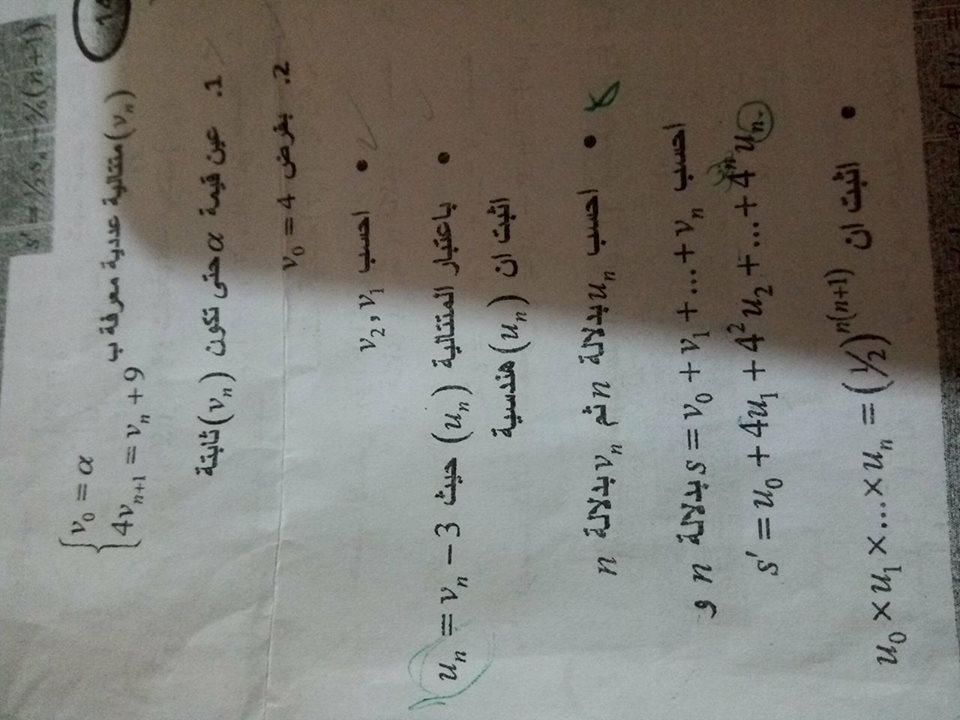 (vₙ) متتالية عددية معرفة ب { v₀ = α
4vₙ₊₁ = vₙ + 9
1. عين قيمة α حتى تكون (vₙ) ثابتة
2. بفرض v₀ = 4
• احسب v₂ , v₁
• باعتبار المتتالية (uₙ) حيث uₙ = vₙ − 3
اثبت ان (uₙ) هندسية
• احسب uₙ بدلالة n ثم vₙ بدلالة n
احسب s = v₀ + v₁ + ... + vₙ بدلالة n و
s′ = u₀ + 4u₁ + 4²u₂ + ... + 4ⁿuₙ
• اثبت ان
u₀ × u₁ × ... × uₙ = (½)ⁿ⁽ⁿ⁺¹⁾